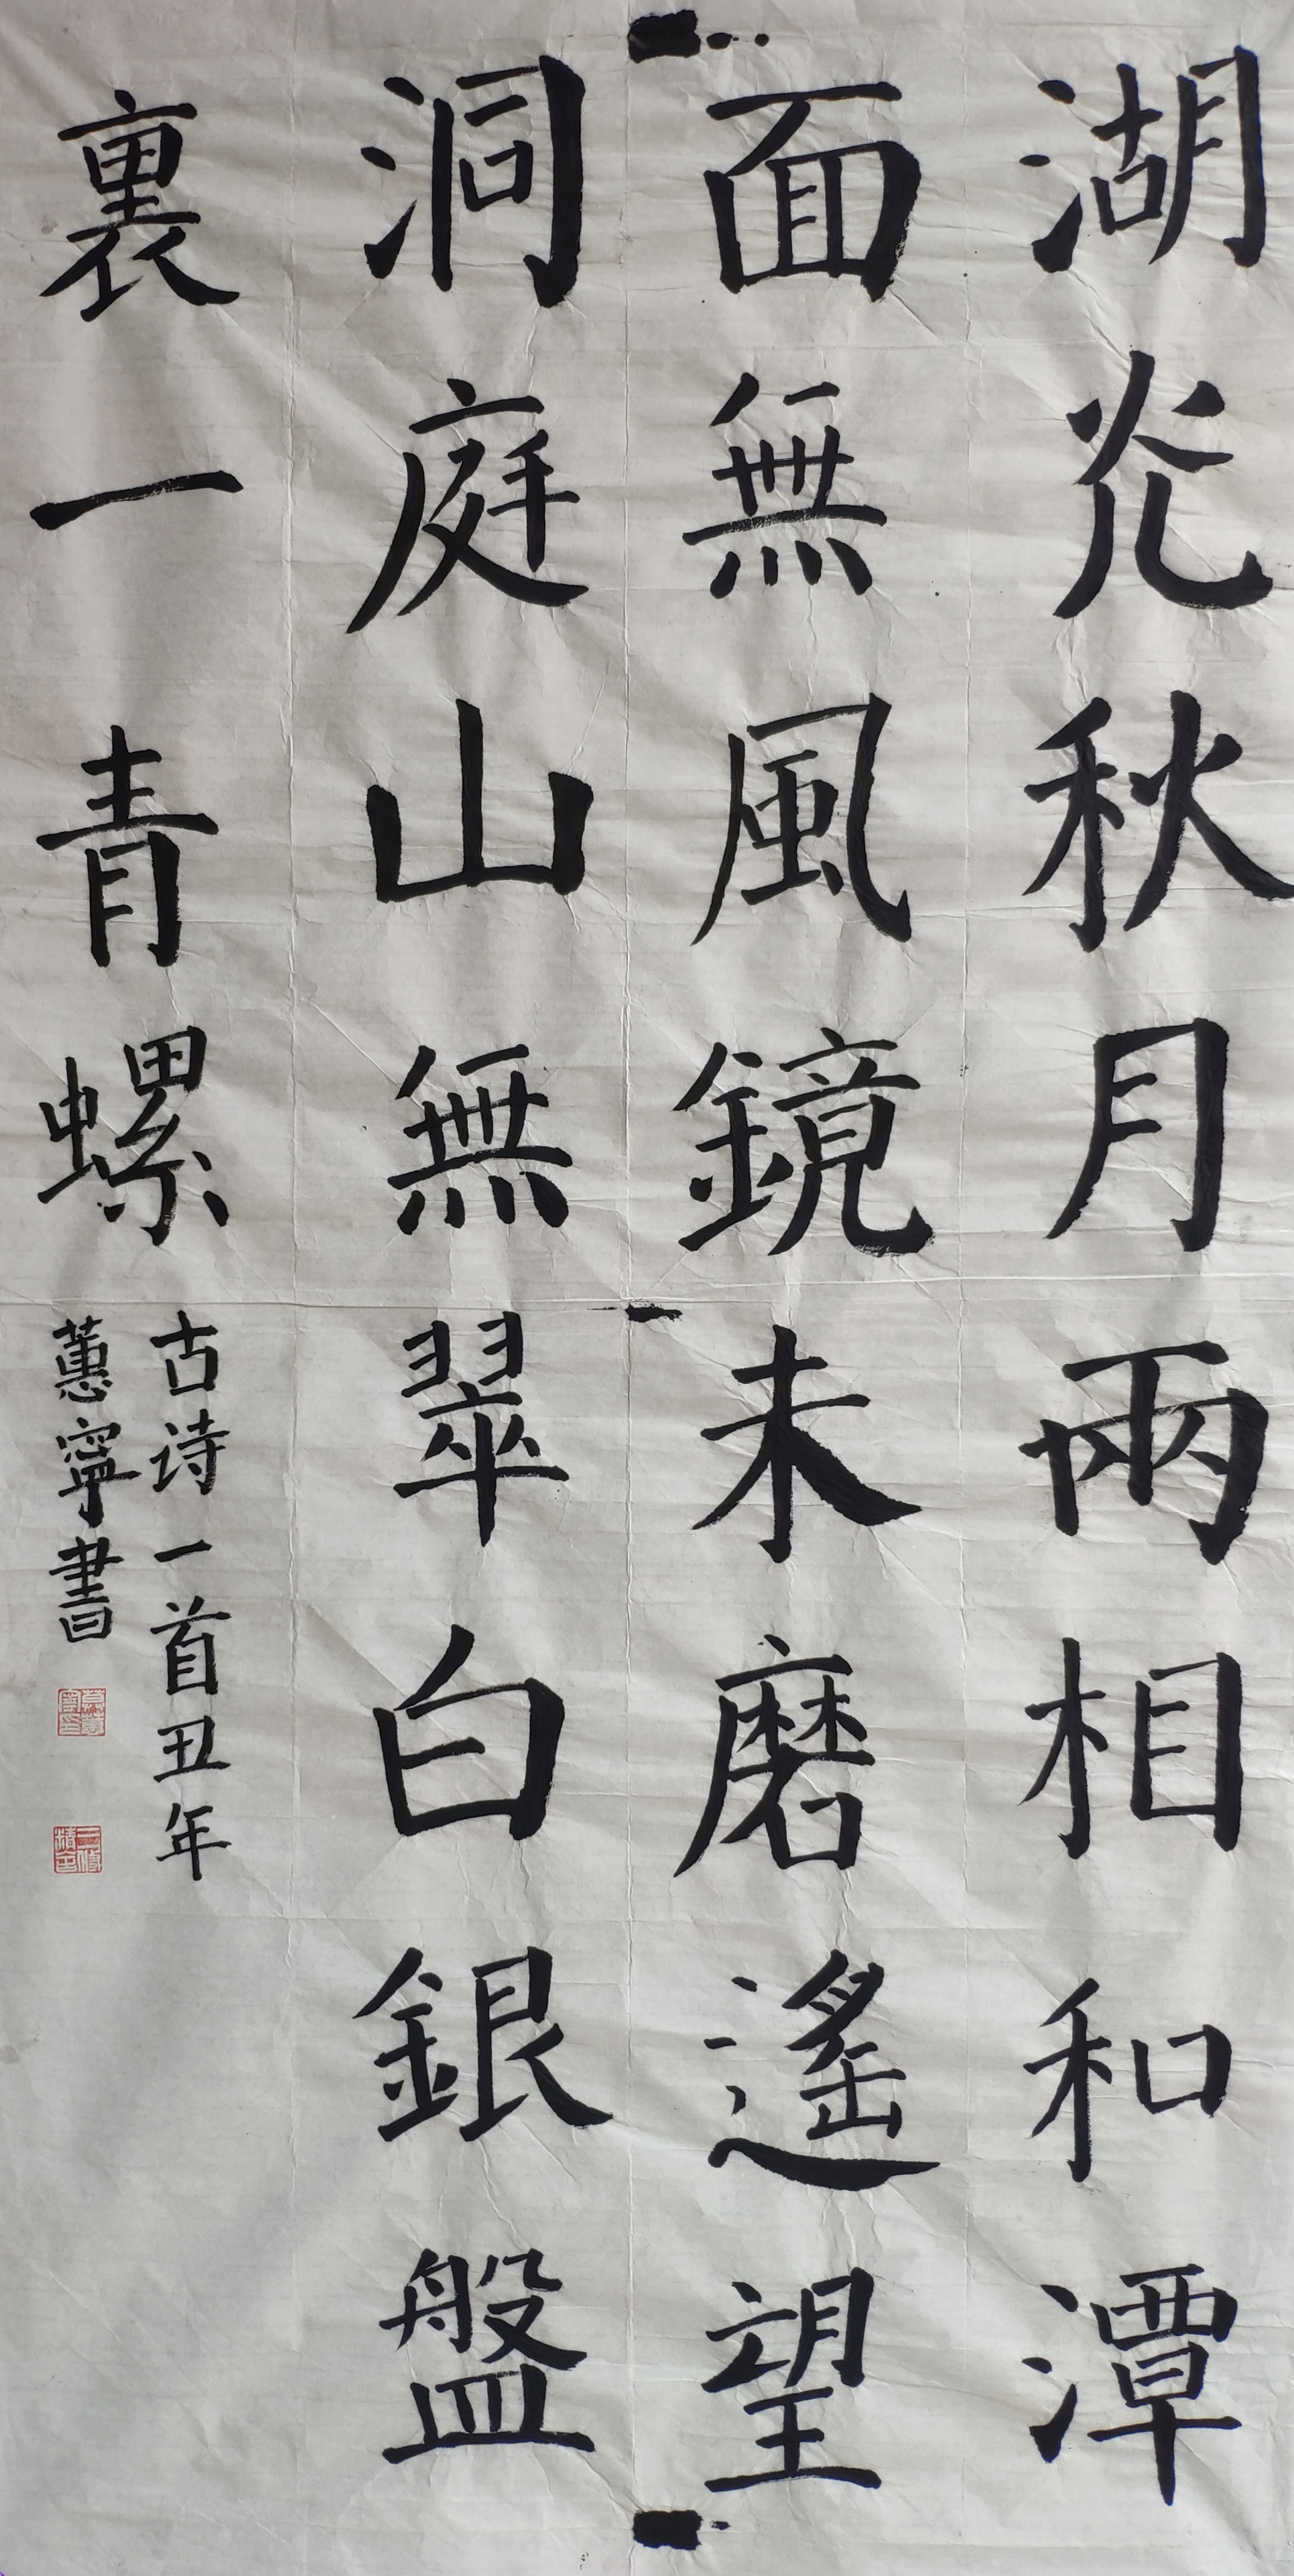 湖光秋月兩相和潭
面無風鏡未磨遙望
洞庭山無翠白銀盤
裏一青螺
古诗一首丑年
蕙寧書